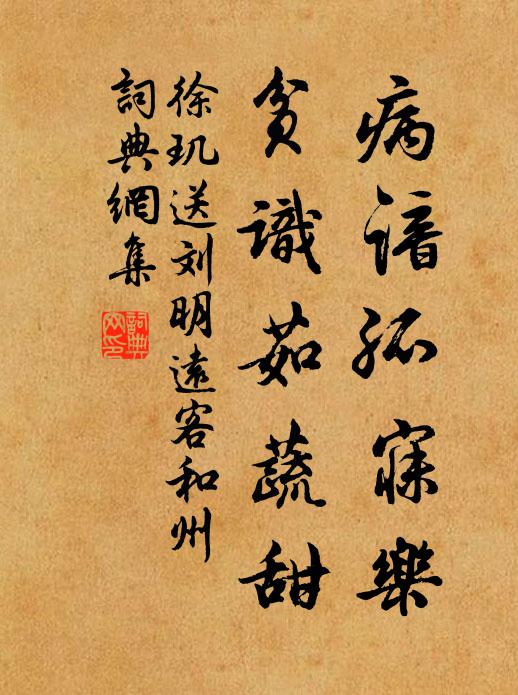 病谙孤寐樂
貧識茹蔬甜
徐玑送刘明遠客和州
詞典網集